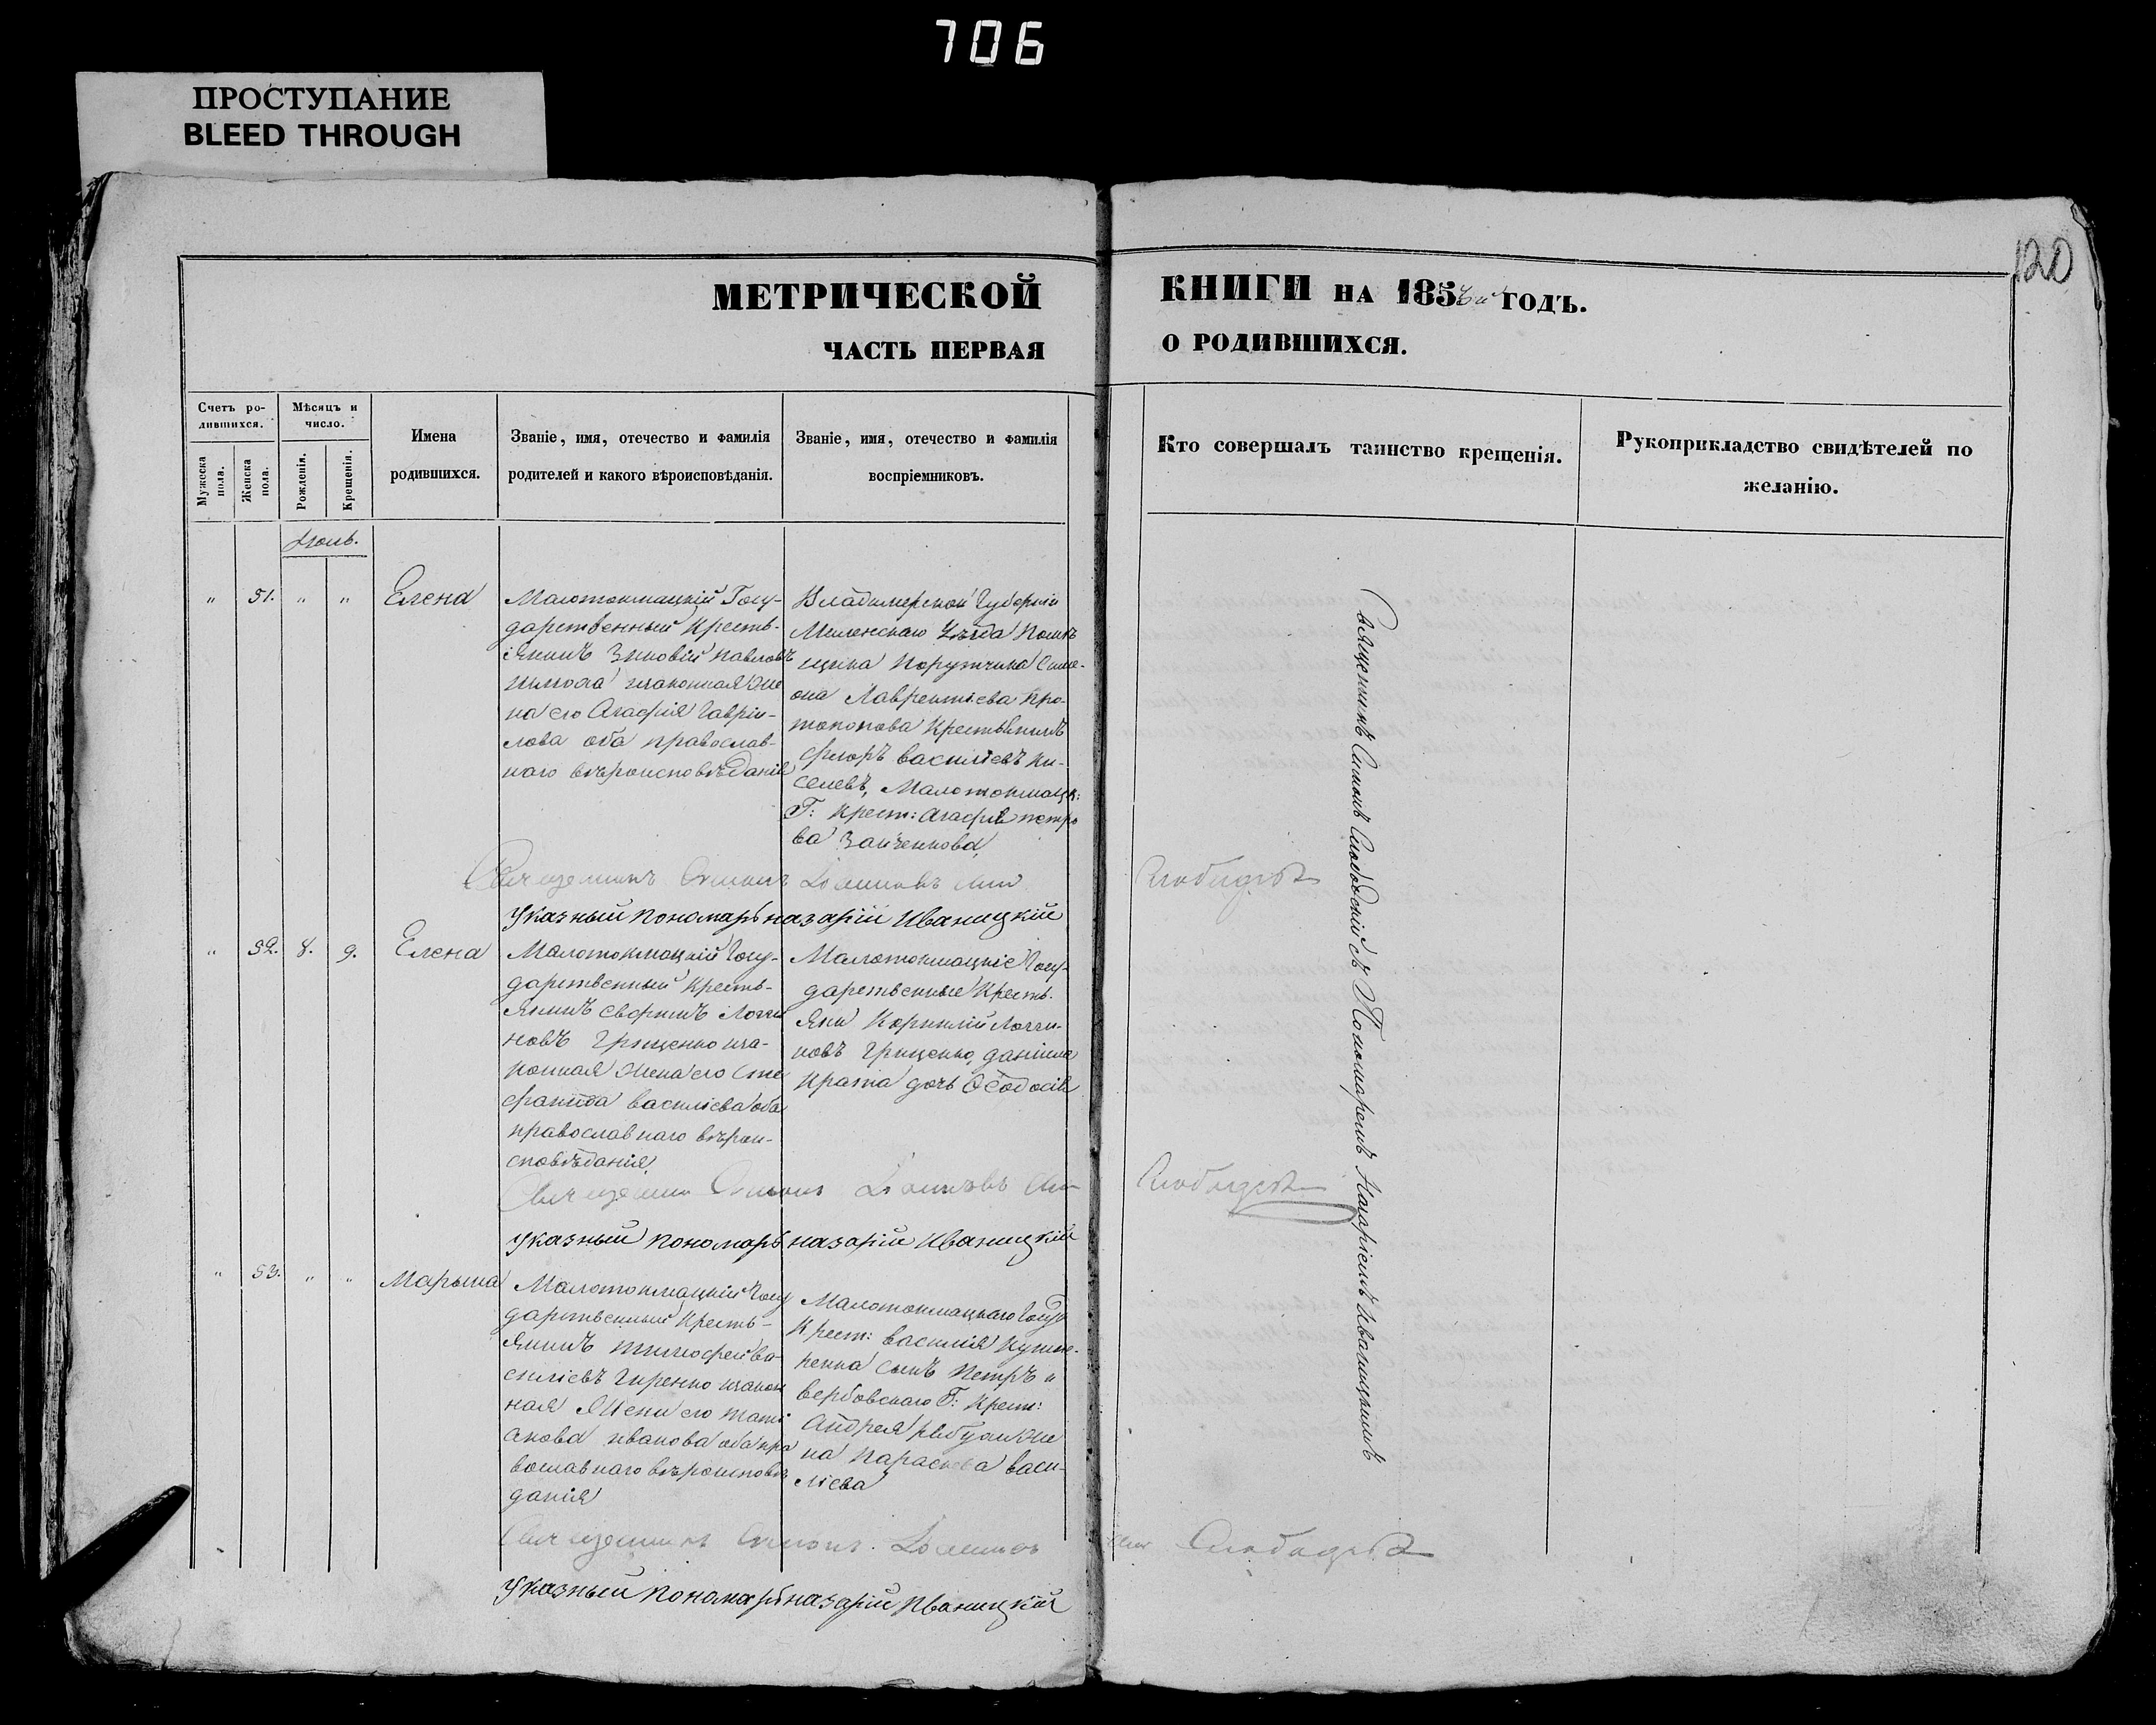 706
ПРОСТУПАНИЕ
BLEED THROUGH
120
МЕТРИЧЕСКОЙ КНИГИ НА 185 ГОДЪ.
ЧАСТЬ ПЕРВАЯ О РОДИВШИХСЯ.
Счетъ родившихся.
Мужеска пола.
Женска пола.
Мѣсяцъ и число.
Рожденія.
Крещенія.
Имена родившихся.
Званіе, имя, отечество и фамилія
родителей и какого вѣроисповѣданія.
Званіе, имя, отечество и фамилія
воспріемниковъ.
Кто совершалъ таинство крещенія.
Рукоприкладство свидѣтелей по
желанію.
" 51. " " Елена
Малотокмацкій Госу-
дарственный Кресть-
янинъ Зиновій Павловъ
изаконная же
на его Агафія Гаврі-
лова оба православ-
наго вѣроисповѣданія
Владимерской Губерніи
Уѣзда Помѣ
щика Поручика Симе-
она Лаврентіева Про-
топопова Крестьянинъ
Флоръ Василіевъ Ки-
селевъ, Малотокмацк:
Г: Крест: Агафія Петро
ва Зайченкова,
Священникъ Симонъ Іоанновъ
Указный Пономарь Назарій Иваницкій
" 52. 8. 9. Елена
Малотокмацкій Госу-
дарственный Кресть-
янинъ Логги
новъ Грищенко иза-
конная жена его Сте
фанида Василіева оба
православнаго вѣрои-
сповѣданія,
Малотокмацкіе Госу-
дарственные Кресть-
яни Корнилій Логги-
новъ Грищенко, Даніила
Крата дочь Ѳеодосія
Священник Симонъ Іоанновъ
Указный Пономарь Назарій Иваницкій
" 53. " " Марына
Малотокмацкій Госу
дарственный Кресть-
янинъ Тимофей Ва-
силіевъ изакон
ная жена его Таті
анова Иванова оба пра
вославнаго вѣроисповѣ
данія
Малотокмацкаго Госуд
Крест: Василія
сынъ Петръ и
Вербовскаго Г: Крест:
Андрея же
на Параскева Васи-
ліева
Священникъ Симонъ Іоанновъ
Указный Пономарь Назарій Иваницкій
Священникъ Симонъ Слободскій съ Пономаремъ Назаріемъ Иваницкимъ